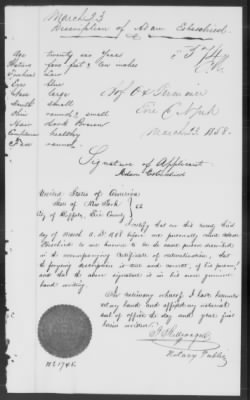 March 23
Description of Adam
Age twenty six Years
Stature five feet 8 ten inches
Eyes blue
Nose large
Mouth small
Chin round & small
Hair Dark Brown
Complexion healthy
Face round
Erie C N York
March 23 1858.
Signature of Applicant
Adam
United States of America
State of New York } ss
City of Buffalo, Erie County
certify that on this twenty third
day of March A.D. 1858 before me personally came Adam
to me known to be the same person described
in the accompanying certificate of naturalization, that
the foregoing description is true and correct, of his person,
and that the above signature is in his own genuine
hand writing.
In testimony whereof I have hereunto
set my hand and affixed my notarial
seal of office the day and year first
herein written
Notary Public